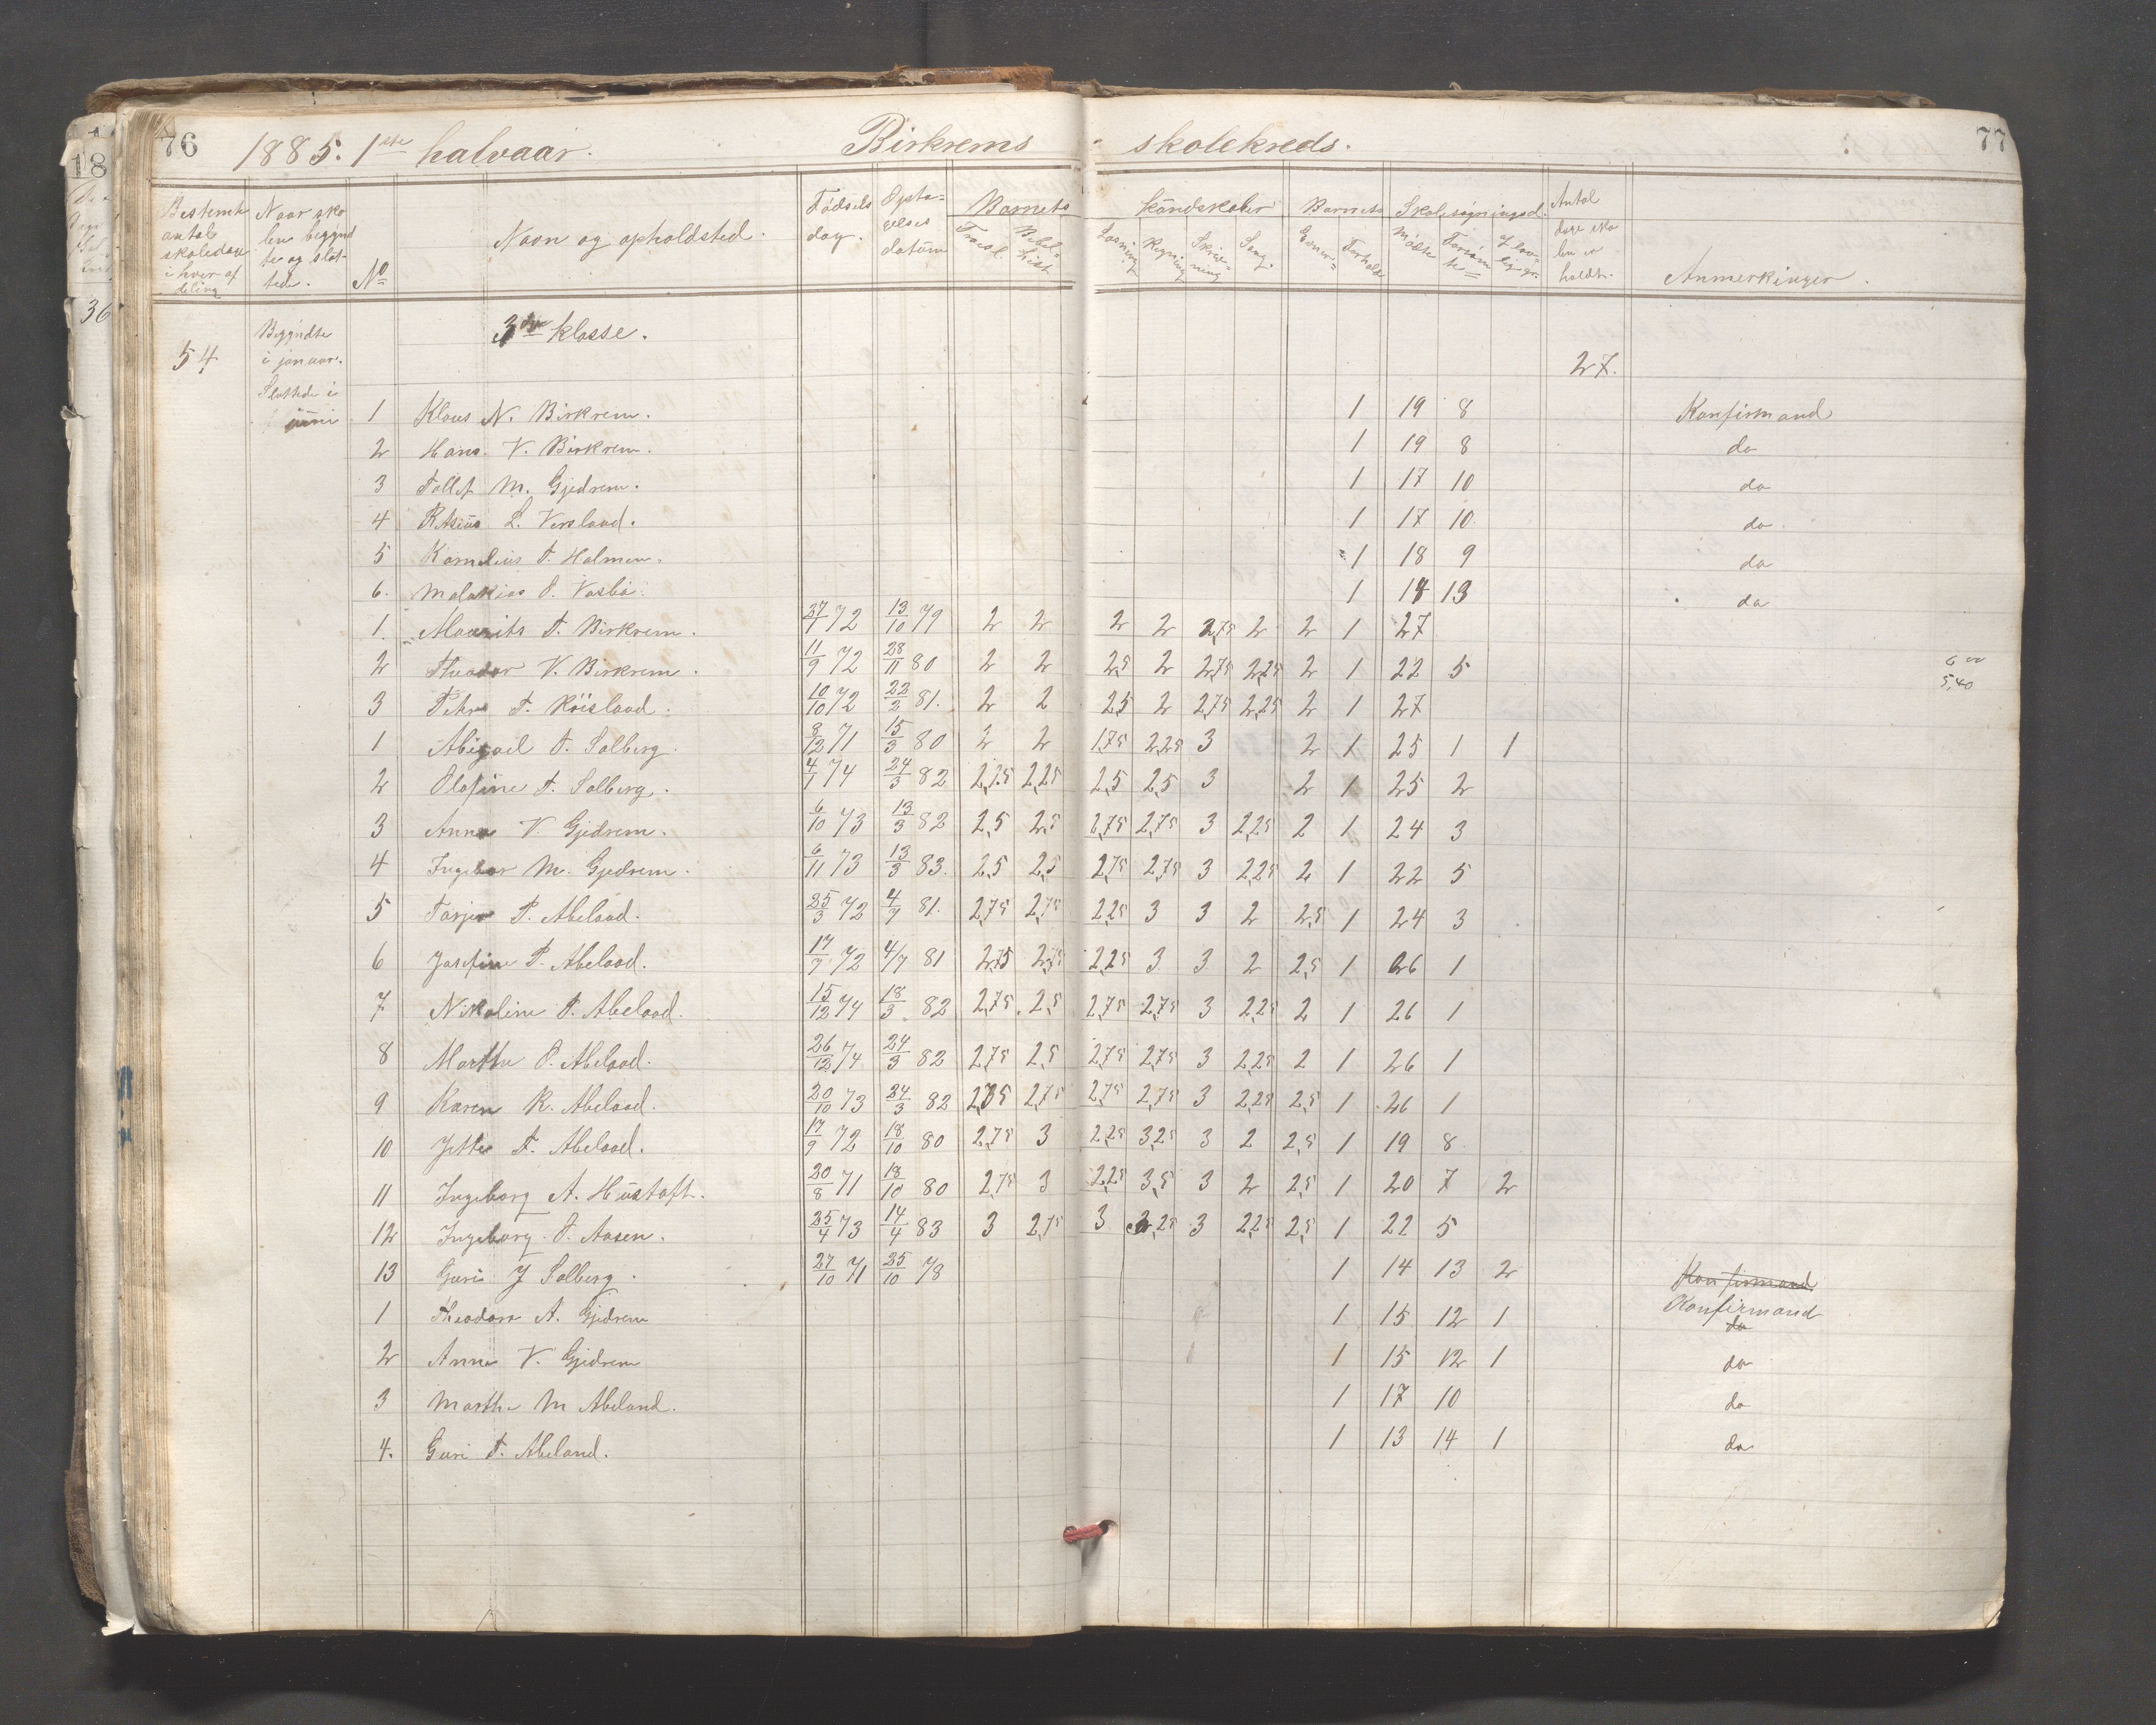 76 1885. 1ste halvaar. Birkrems skolekreds. 77
18
36
Bestemte antal skoledage i hver afdeling
Naar skolen begyndte og sluttede.
No
Navn og opholdsted.
Fødselsdag.
Optagelses datum
Barnets kundskaber
Troesl. Bibelhist. Læsning Regning Skrivning Sang.
Barnets
Evner Forhold
Skolesøgningsd.
Mødte Forsømte
Antal dage skolen er holdt.
Anmerkinger.
54 Begyndte i januar. Sluttede i juni
3die klasse. 27.
1 Klaus N. Birkrem. 1 19 8 Konfirmand
2 Hans. V. Birkrem. 1 19 8 do
3 Tollef M. Gjedrem. 1 17 10 do
4 Rasius L. Versland. 1 17 10 do
5 Kornelius T. Holmen. 1 18 9 do
6. Malakias O. Vasbø. 1 14 13 do
1. Maurits T. Birkrem. 27/1 72 13/10 79 2 2 2 2 2,75 2 2 1 27
2 Theodor V. Birkrem. 11/9 72 28/11 80 2 2 2,5 2 2,75 2,25 2 1 22 5 6 00
3 Petra T. Røisland. 10/10 72 22/2 81. 2 2 2,5 2 2,75 2,25 2 1 27 5,40
1 Abigael T. Solberg. 8/12 71 15/3 80 2 2 1,75 2,25 3 2 1 25 1 1
2 Olofine T. Solberg. 4/1 74 24/3 82 2,25 2,25 2,5 2,5 3 2 1 25 2
3 Anna V. Gjedrem. 6/10 73 13/3 82 2,5 2,5 2,75 2,75 3 2,25 2 1 24 3
4 Ingebor M. Gjedrem. 6/11 73 13/3 83. 2,5 2,5 2,75 2,75 3 2,25 2 1 22 5
5 Tarjer P. Abeland. 25/3 72 4/7 81. 2,75 2,75 2,25 3 3 2 2,5 1 24 3
6 Josefine P. Abeland. 17/7 72 4/7 81 2,75 2,75 2,25 3 3 2 2,5 1 26 1
7 Nikoline T. Abeland. 15/12 74 18/3 82 2,75 2,5 2,75 2,75 3 2,25 2 1 26 1
8 Marthe O. Abeland. 26/12 74 24/3 82 2,75 2,5 2,75 2,75 3 2,25 2 1 26 1
9 Karen R. Abeland. 20/10 73 24/3 82 2,75 2,75 2,75 2,75 3 2,25 2,5 1 26 1
10 Jette T. Abeland. 17/9 72 18/10 80 2,75 3 2,25 3,25 3 2 2,5 1 19 8
11 Ingeborg A. Hustoft. 20/8 71 18/10 80 2,75 3 2,25 3,5 3 2 2,5 1 20 7 2
12 Ingeborg O. Aasen. 25/4 73 14/4 83 3 2,75 3 3,25 3 2,25 2,5 1 22 5
13 Guri J Solberg. 27/10 71 25/10 78 1 14 13 2 Konfirmand
1 Theodora A. Gjedrem 1 15 12 1 Konfirmand do
2 Anna V. Gjedrem 1 15 12 1 do
3 Martha M Abeland. 1 17 10 do
4. Guri T. Abeland. 1 13 14 1 do